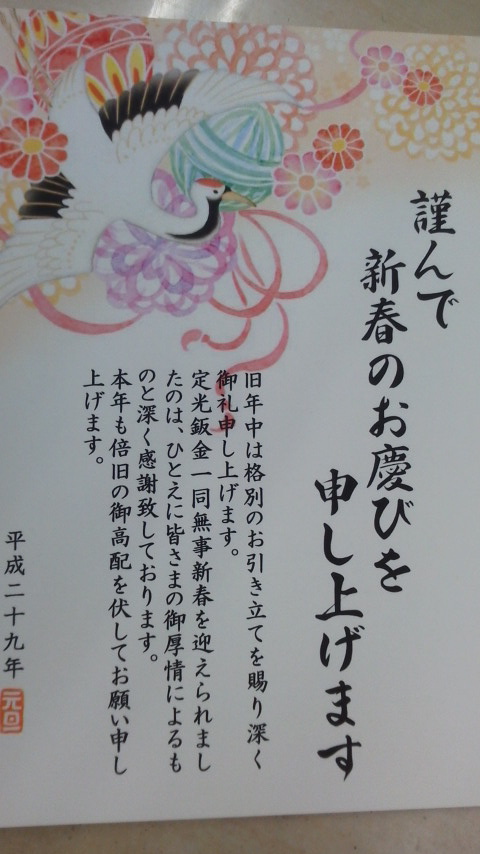 謹んで
新春のお慶びを
申し上げます
旧年中は格別のお引き立てを賜り深く
御礼申し上げます。
定光鈑金一同無事新春を迎えられまし
たのは、ひとえに皆さまの御厚情によるも
のと深く感謝致しております。
本年も倍旧の御高配を伏してお願い申し
上げます。
平成二十九年
元旦